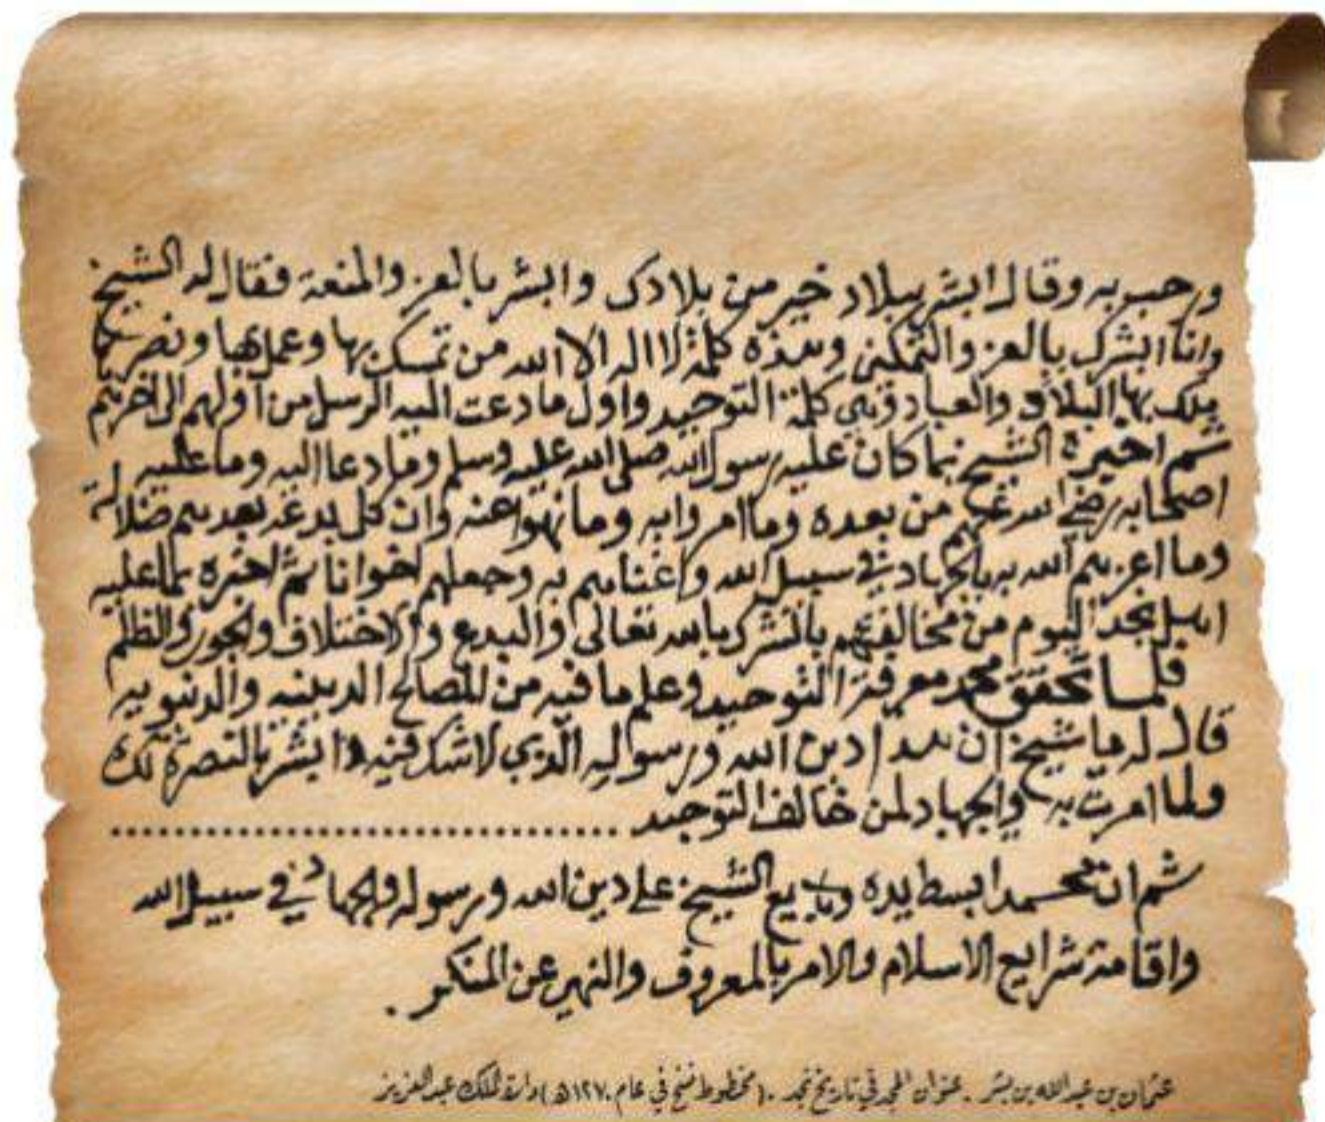 ورحب به وقال ابشر ببلاد خير من بلادك وابشر بالعز والمنعة فقال له الشيخ
وانا ابشرك بالعز والتمكين وهذه كلمة لا اله الا الله من تمسك بها وعمل بها ونصرها
ملك بها البلاد والعباد وهي كلمة التوحيد واول ما دعت اليه الرسل من اولهم الى اخرهم
ثم اخبره الشيخ بما كان عليه رسول الله صلى الله عليه وسلم وما دعا اليه وما عليه
اصحابه رضي الله عنهم من بعده وما امروا به وما نهوا عنه وان كل بدعة بعدهم ضلالة
وما اعزهم الله به بالجهاد في سبيل الله واغناهم به وجعلهم اخوانا ثم اخبره بما عليه
اهل نجد اليوم من مخالفتهم بالشرك بالله تعالى والبدع والاختلاف والجور والظلم
فلما تحقق محمد معرفة التوحيد وعلم ما فيه من المصالح الدينيه والدنيويه
قال له يا شيخ ان هذا دين الله ورسوله الذي لا شك فيه وابشر بالنصرة لك
ولما امرت به والجهاد لمن خالف التوحيد ......................................
ثم ان محمدا بسط يده وبايع الشيخ على دين الله ورسوله والجهاد في سبيل الله
واقامة شرايع الاسلام والامر بالمعروف والنهي عن المنكر .
عثمان بن عبدالله بن بشر . عنوان المجد في تاريخ نجد . (مخطوط نسخ في عام ١٢٧٠هـ) دارة الملك عبدالعزيز